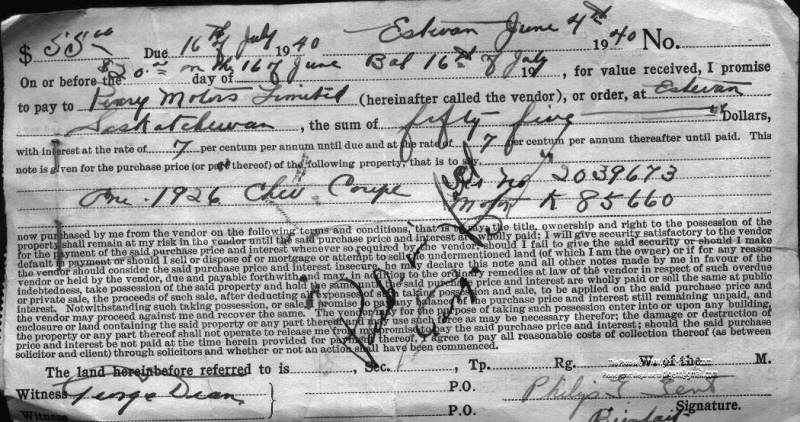 $ 55.00 Due 16th of July 1940 Estevan June 4th 1940 No.
On or before the $20.00 on the 16 of June day of Bal 16th of July 19 , for value received, I promise
to pay to Perry Motors Limited (hereinafter called the vendor), or order, at Estevan
Saskatchewan , the sum of fifty five Dollars,
with interest at the rate of 7 per centum per annum until due and at the rate of 7 per centum per annum thereafter until paid. This
note is given for the purchase price (or part thereof) of the following property, that is to say
One 1926 Chev Coupe Ser No 2039673
Motor K 85660
now purchased by me from the vendor on the following terms and conditions, that is to say: the title, ownership and right to the possession of the
property shall remain at my risk in the vendor until the said purchase price and interest is fully paid; I will give security satisfactory to the vendor
for the payment of the said purchase price and interest whenever so required by the vendor; should I fail to give the said security or should I make
default in payment or should I sell or dispose of or mortgage or attempt to sell the undermentioned land (of which I am the owner) or if for any reason
the vendor should consider the said purchase price and interest insecure, he may declare this note and all other notes made by me in favour of the
vendor or held by the vendor, due and payable forthwith, and may, in addition to the ordinary remedies at law of the vendor in respect of such overdue
indebtedness, take possession of the said property and hold the same until the said purchase price and interest are wholly paid or sell the same at public
or private sale, the proceeds of such sale, after deducting all expenses of taking possession and sale, to be applied on the said purchase price and
interest. Notwithstanding such taking possession, or sale, I promise to pay the purchase price and interest still remaining unpaid, and
the vendor may proceed against me and recover the same. The vendor may for the purpose of taking such possession enter into or upon any building,
enclosure or land containing the said property or any part thereof and may use such force as may be necessary therefor; the damage or destruction of
the property or any part thereof shall not operate to release me from liability to pay the said purchase price and interest; should the said purchase
price and interest be not paid at the time herein provided for payment thereof, I agree to pay all reasonable costs of collection thereof (as between
solicitor and client) through solicitors and whether or not an action shall have been commenced.
The land hereinbefore referred to is , Sec. , Tp. Rg. W. of the M.
Witness George Dean P.O. Philip
Witness P.O. Signature.